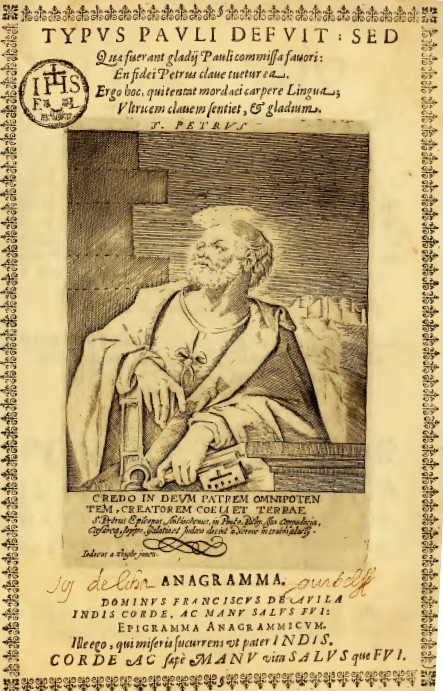 TYPVS PAVLI DEFVIT: SED
Quæ fuerant gladij Pauli commissa fauori:
En fidei Petrus claue tuetur ea.
Ergo hoc, qui tentat mordaci carpere Lingua;
Vltricem clauem sentiet, & gladium.
IHS
S. PETRVS
CREDO IN DEVM PATREM OMNIPOTEN
TEM, CREATOREM COELI ET TERRAE
S. Petrus Episcopus Antiochenus, in Ponto,
ANAGRAMMA.
DOMINVS FRANCISCVS DE AVILA
INDIS CORDE, AC MANV SALVS FVI:
EPIGRAMMA ANAGRAMMICVM.
Ille ego, qui miseris sucurrens vt pater INDIS.
CORDE AC sæpè MANV vita SALVS que FVI.